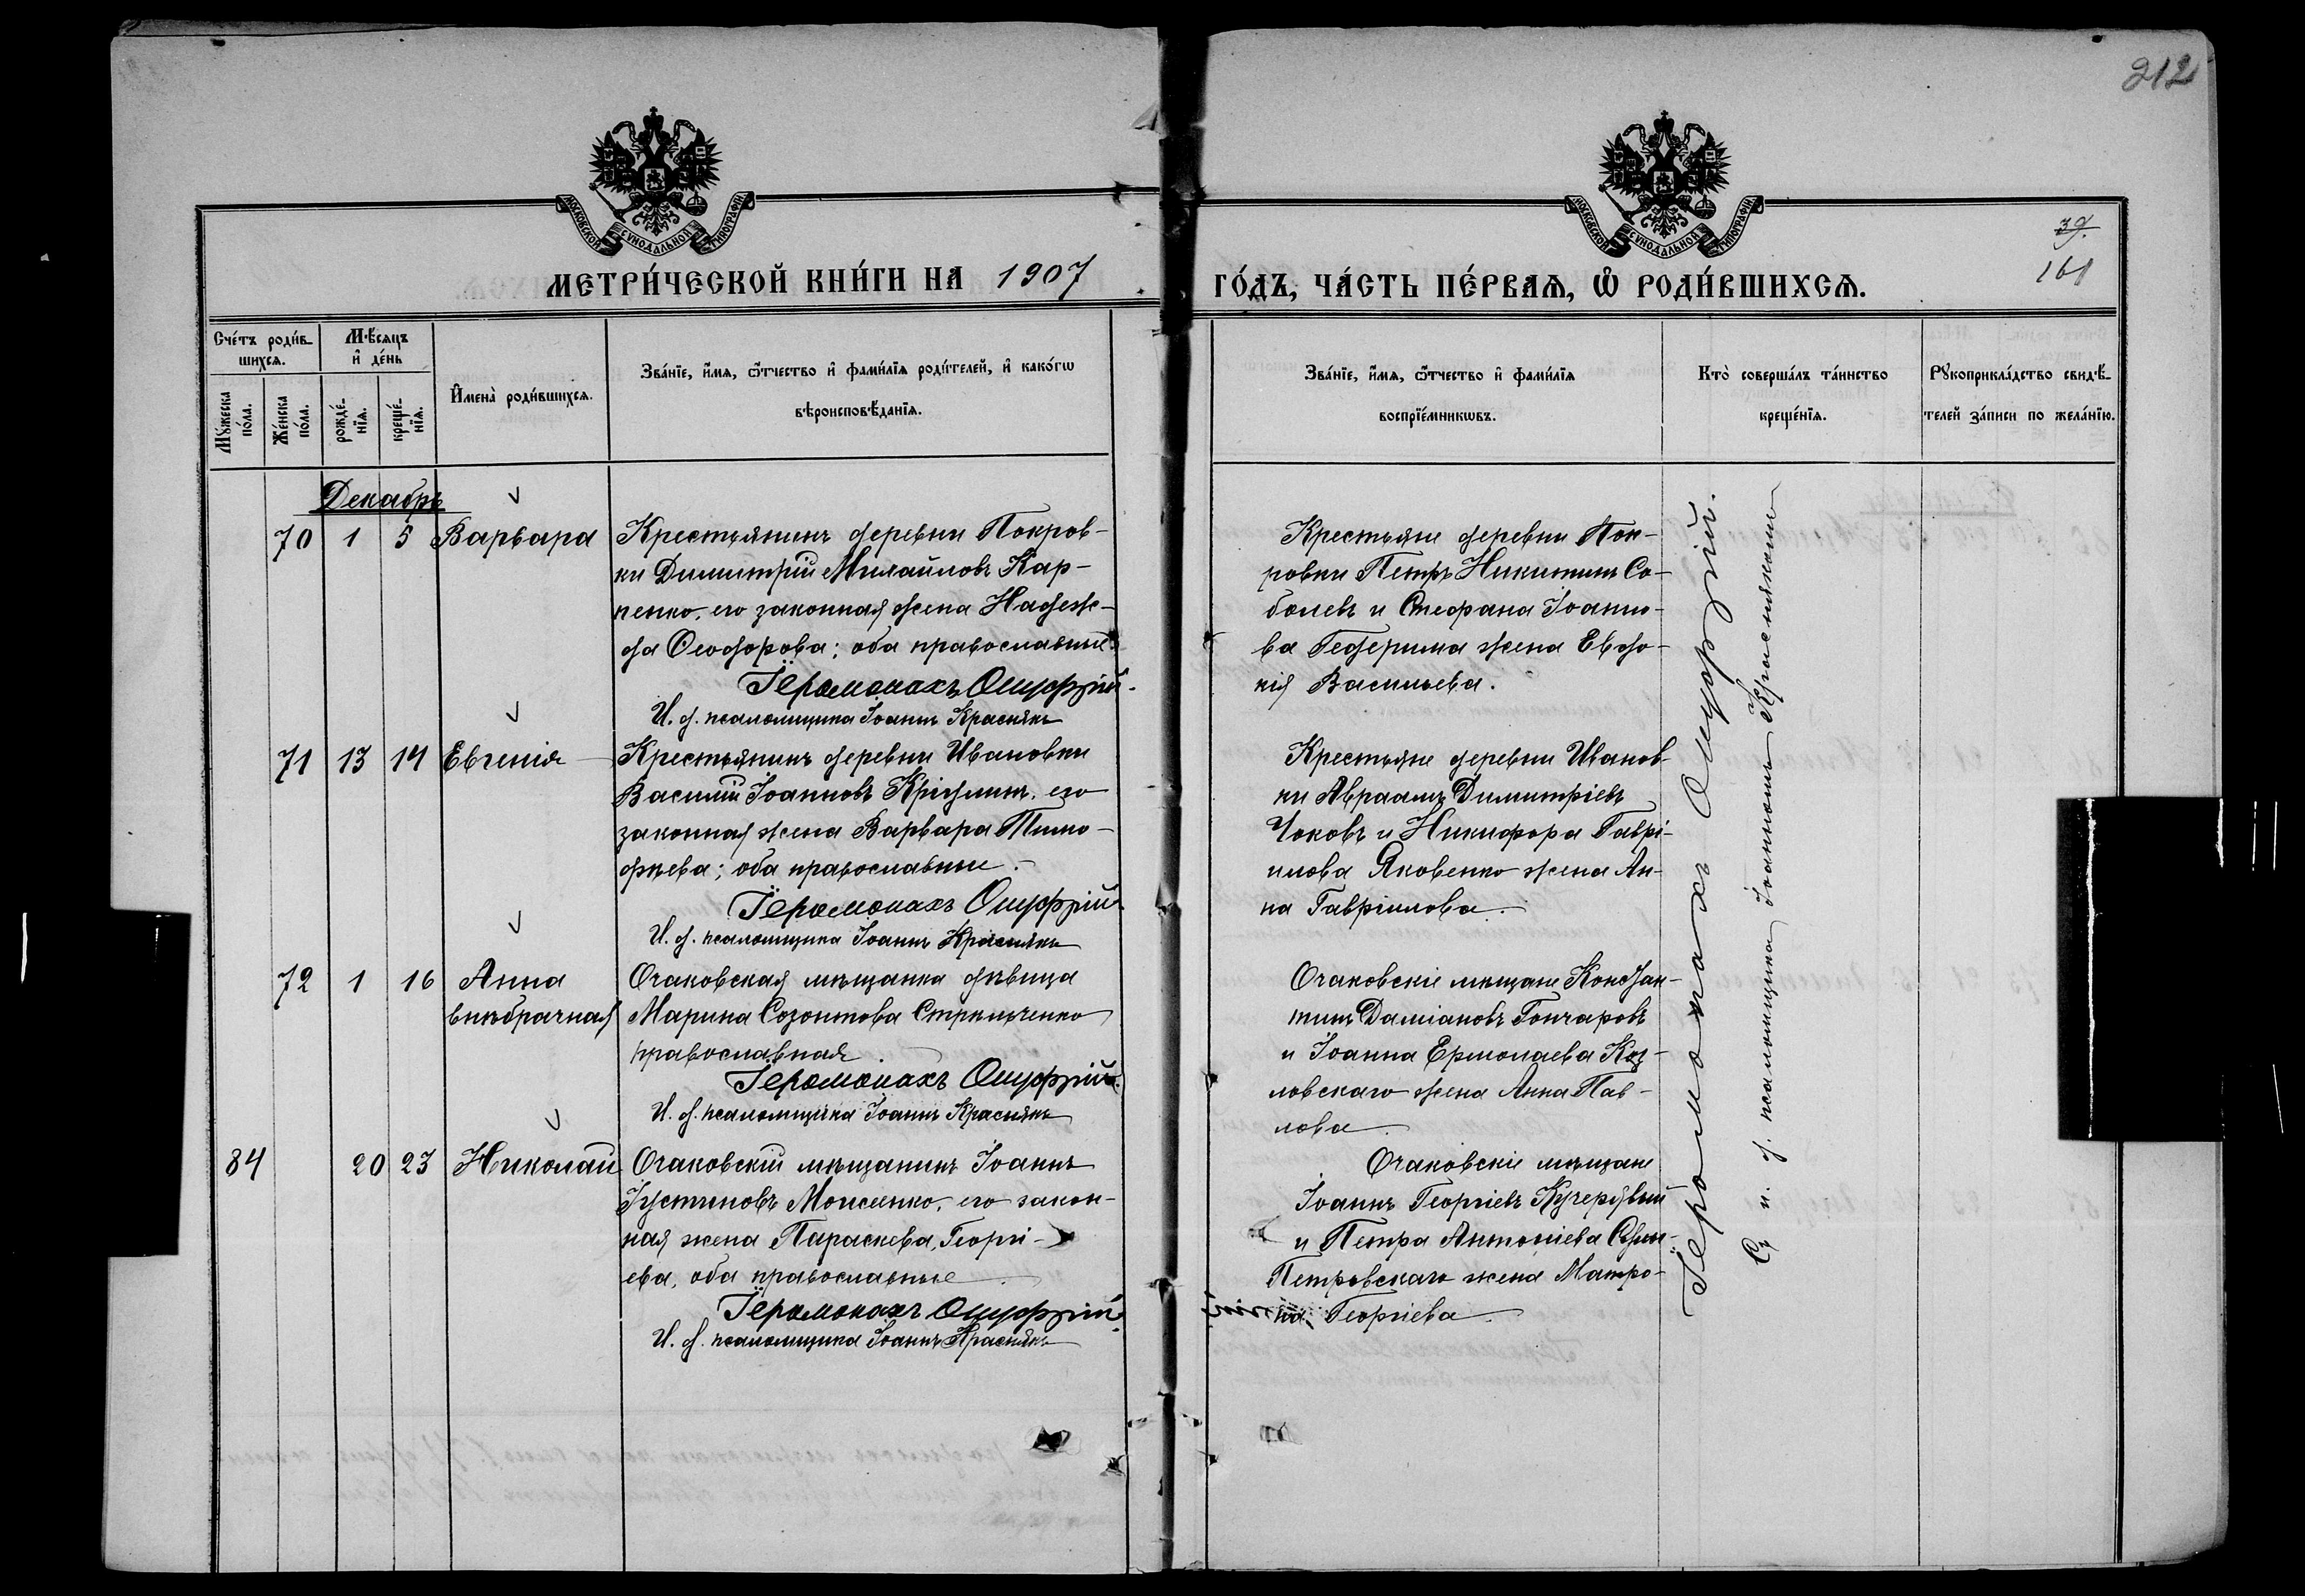 212
МОСКОВСКОЙ СУНОДАЛЬНОЙ ТИПОГРАФІИ
МОСКОВСКОЙ СУНОДАЛЬНОЙ ТИПОГРАФІИ
39.
161
МЕТРИ́ЧЕСКОЙ КНИ́ГИ НА 1907
ГО́ДЪ, ЧА́СТЬ ПЕ́РВАѦ, Ѡ҆ РОДИ́ВШИХСѦ.
Сче́тъ роди́в-
шихсѧ.
Мꙋ́жеска по́ла.
Же́нска по́ла.
Мѣ́сѧцъ
и҆ де́нь
рожде́-
нїѧ.
креще́-
нїѧ.
И҆мена̀ роди́вшихсѧ.
Зва́нїе, и҆́мѧ, ѻ҆́тчество и҆ фами́лїѧ роди́телей, и҆ како́гѡ
вѣроисповѣ́данїѧ.
Зва́нїе, и҆́мѧ, ѻ҆́тчество и҆ фами́лїѧ
воспрїе́мникѡвъ.
Кто̀ соверша́лъ та́инство
креще́нїѧ.
Рꙋкоприкла́дство свидѣ́-
телей за́писи по жела́нїю.
Декабрь
70 1 5 Варвара
Крестьянинъ деревни Покров-
ки Димитрій Михайловъ Кар-
пенко, его законная жена Надеж-
да Ѳеодорова; оба православные.
Іеромонахъ Онуфрій.
И. д. псаломщика Іоаннъ Краснякъ
Крестьяне деревни Пок-
ровки Петръ Никитинъ Со-
болевъ и Стефана Іоанно-
ва жена Евдо-
кія Васильева.
71 13 14 Евгенія
Крестьянинъ деревни Ивановки
Василій Іоанновъ его
законная жена Варвара Тимо-
фѣева; оба православные.
Іеромонахъ Онуфрій
И. д. псаломщика Іоаннъ Краснякъ
Крестьяне деревни Иванов-
ки Авраамъ Димитріевъ
Чоковъ и Никифора Гаврі-
илова Яковенко жена Ан-
на Гавріилова.
72 1 16 Анна
внѣбрачная
Очаковская мѣщанка дѣвица
Марина Созонтова Стрильченко
православная.
Іеромонахъ Онуфрій.
И. д. псаломщика Іоаннъ Краснякъ
Очаковскіе мѣщане Констан-
тинъ Даміановъ Гончаровъ
и Іоанна Ермолаева Коз-
ловскаго жена Анна Пав-
лова.
84 20 23 Николай
Очаковскій мѣщанинъ Іоаннъ
Іустиновъ Моисеенко, его закон-
ная жена Параскева Георгі-
ева, оба православные.
Іеромонахъ Онуфрій.
И. д. псаломщика Іоаннъ Краснякъ
Очаковскіе мѣщане
Іоаннъ Георгіевъ Кучерявый
и Петра Антоніева
Петровскаго жена Матро-
на Георгіева.
Іеромонахъ Онуфрій.
Съ и. д. псаломщика Іоанномъ Краснякомъ